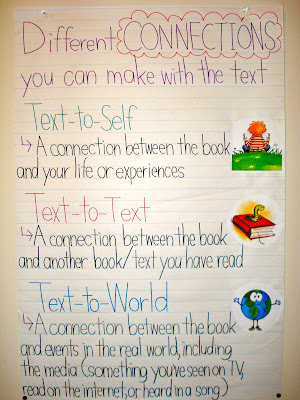 Different CONNECTIONS
you can make with the text
Text-to-Self
↳ A connection between the book
and your life or experiences
Text-to-Text
↳ A connection between the book
and another book/text you have read
Text-to-World
↳ A connection between the book
and events in the real world, including
the media (something you've seen on TV,
read on the internet, or heard in a song)